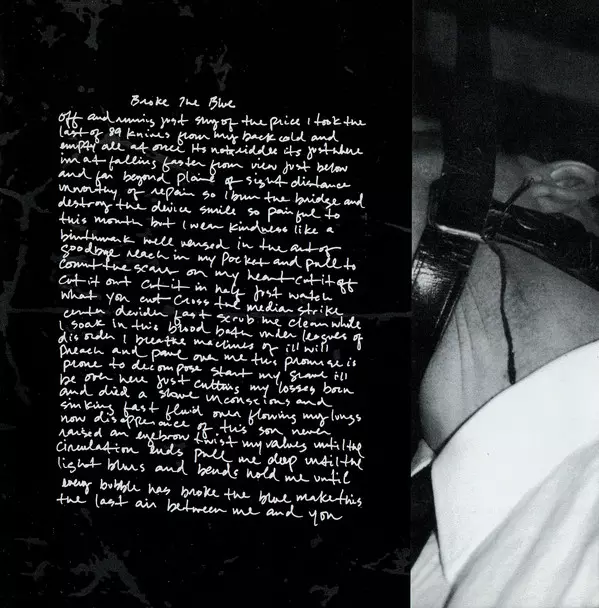 Broke The Blue
off and running just shy of the price I took the
last of 89 knives from my back cold and
empty all at once its no riddle its just where
im at falling faster from view just below
and far beyond plane of sight distance
unworthy of repair so I burn the bridge and
destroy the device smile so painful to
this mouth but I wear kindness like a
birthmark well versed in the art of
goodbye reach in my pocket and pull to
count the scars on my heart cut it off
cut it out cut it in half just watch
what you cut cross the median strike
center divider fast scrub me clean while
I soak in this blood bath under leagues of
disorder I breathe machines of ill will
preach and pave over me this promise is
prone to decompose start my grave ill
be over here just cutting my losses born
and died a slave unconscious and
sinking fast fluid over flowing my lungs
now disappearance of this son never
raised an eyebrow twist my values until the
circulation ends pull me deep until the
light blurs and bends hold me until
every bubble has broke the blue make this
the last air between me and you